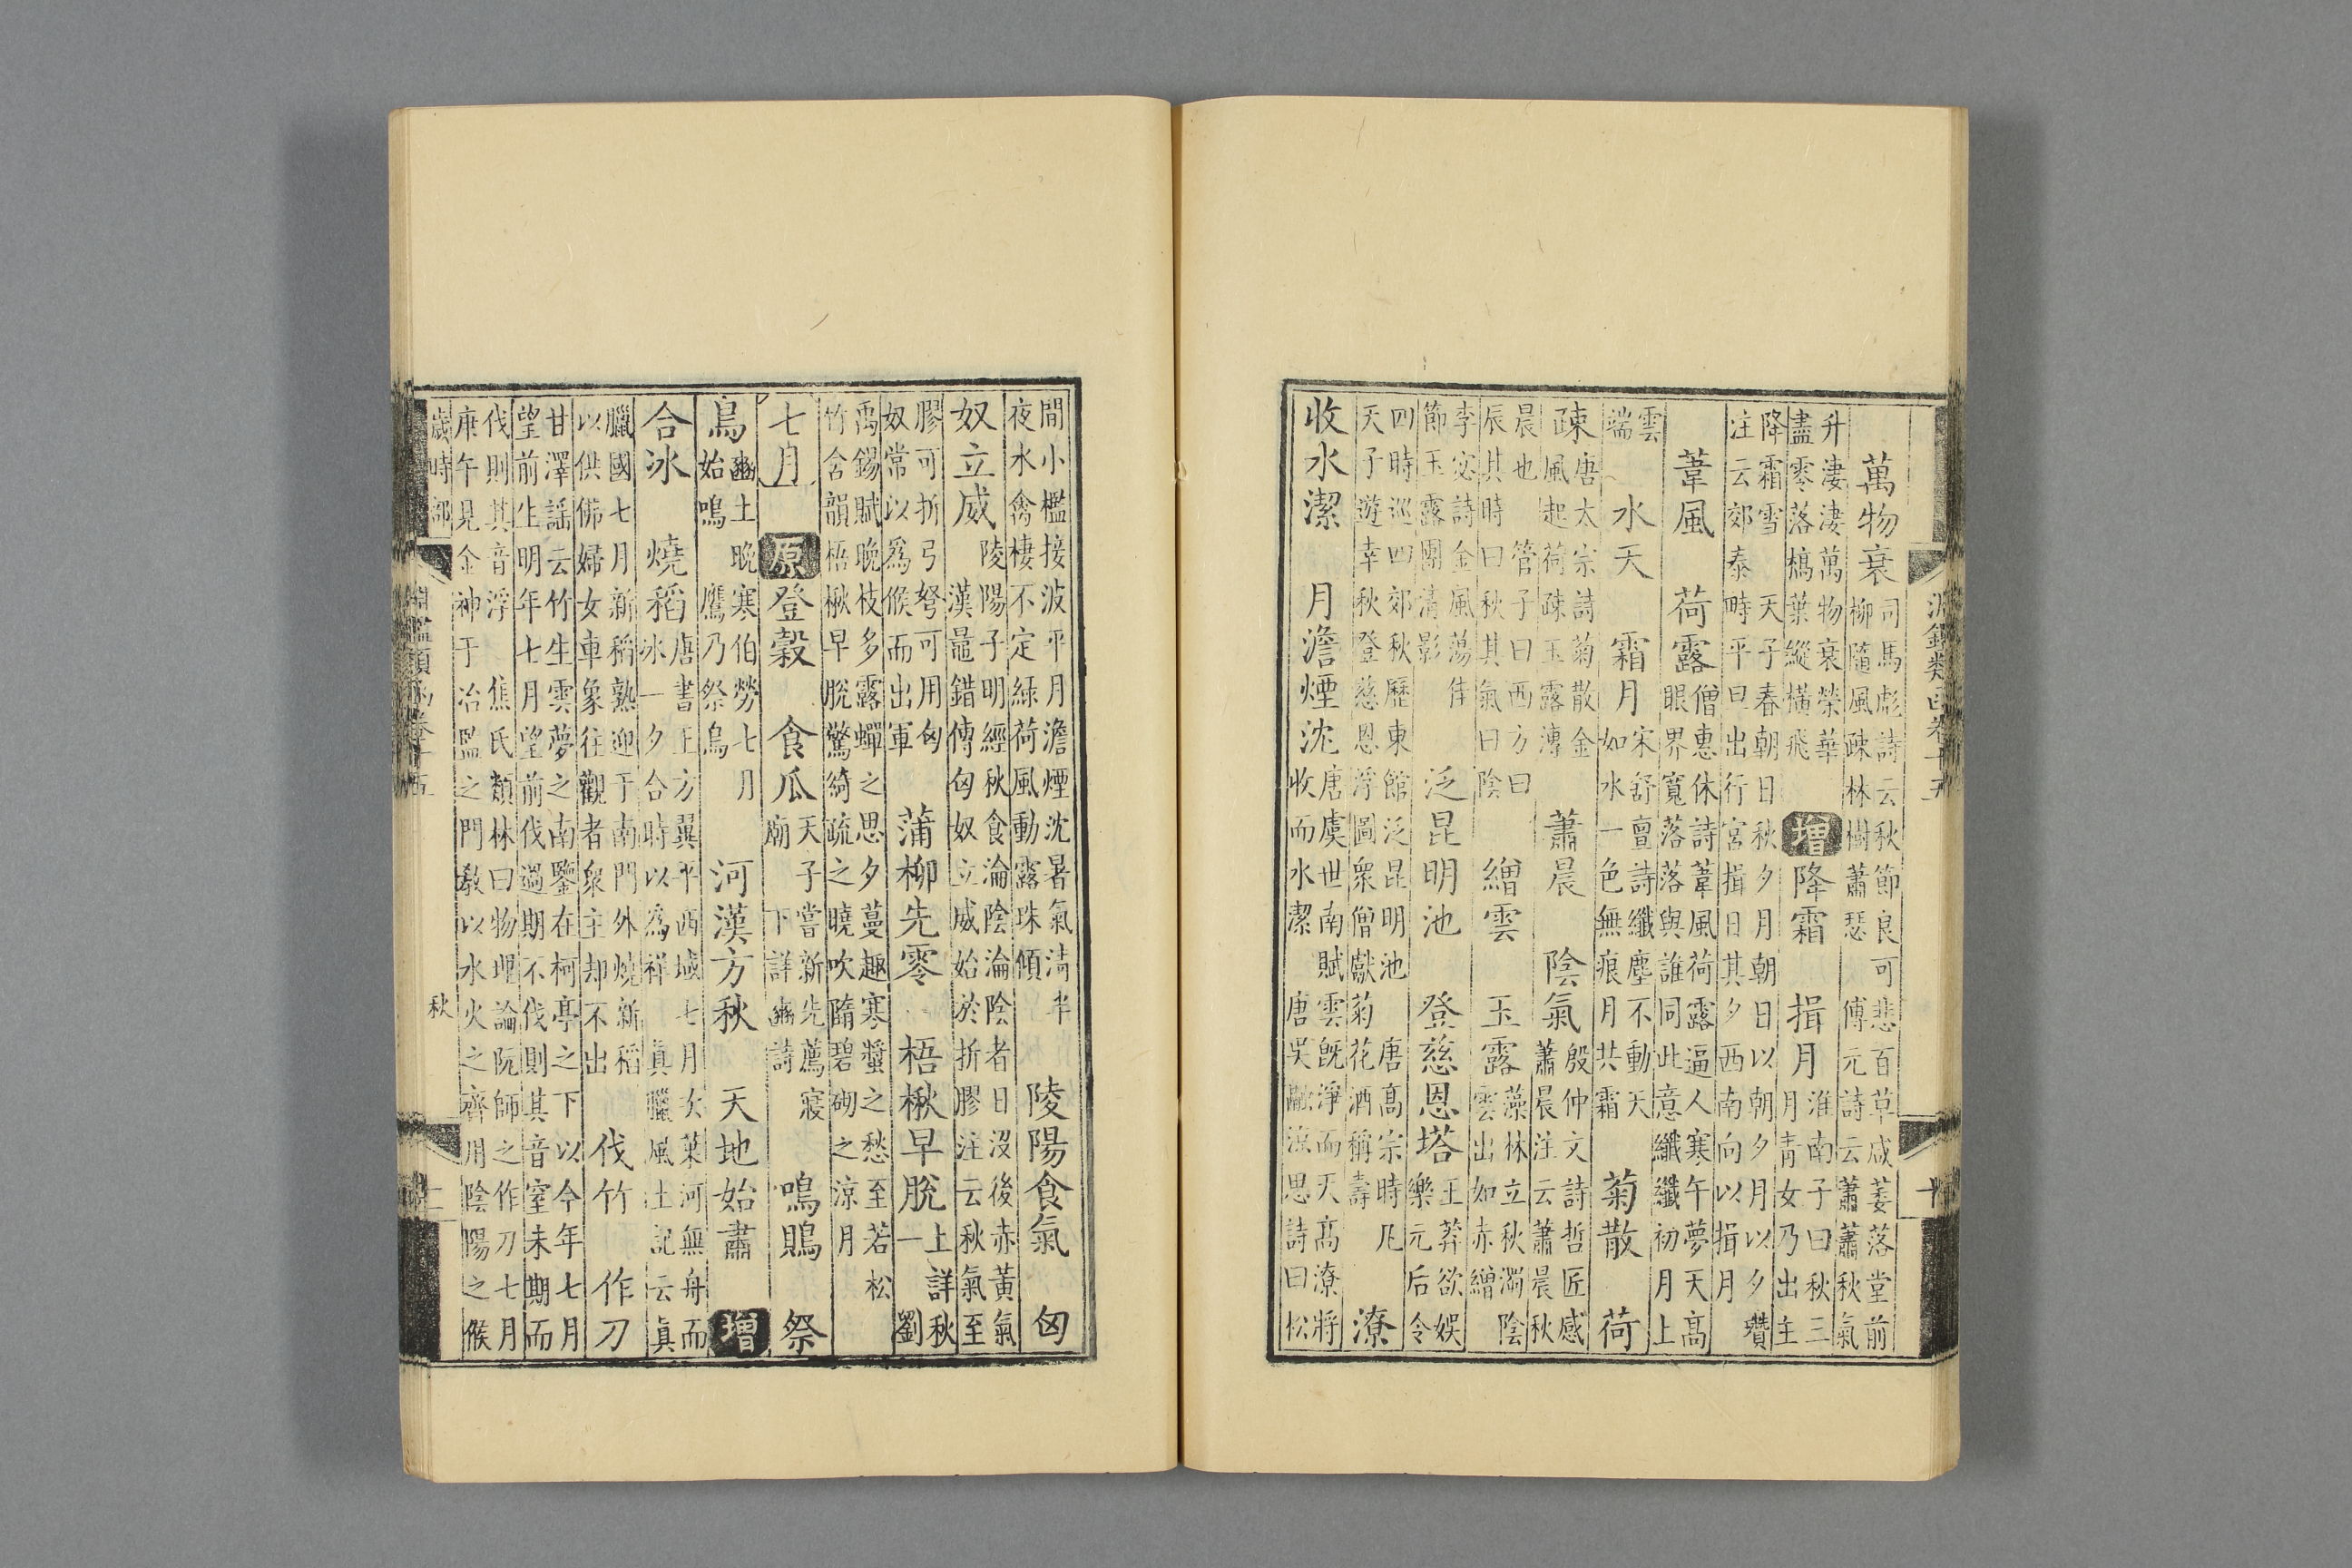 淵鑑類函卷十五
十
萬物衰
司馬彪詩云秋節良可悲百草咸萎落堂前
柳隨風疎林樹蕭瑟　傅元詩云蕭蕭秋氣
升淒淒萬物衰榮華
盡零落槁葉縱橫飛
增降霜　揖月
淮南子曰秋三
月青女乃出主
降霜雪　天子春朝日秋夕月朝日以朝夕月以夕瓚
注云郊泰畤平旦出行宮揖日其夕西南向以揖月
葦風　荷露
僧惠休詩葦風荷露逼人寒午夢天高
眼界寬落落與誰同此意纖纖初月上
雲
端
水天　霜月
宋舒亶詩纖塵不動天
如水一色無痕月共霜
菊散　荷
疎
唐太宗詩菊散金
風起荷疎玉露漙
蕭晨　陰氣
殷仲文詩哲匠感
蕭晨注云蕭晨秋
晨也　管子曰西方曰
辰其時曰秋其氣曰陰
繒雲　玉露
藻林立秋濁陰
雲出如赤繒
李宓詩金風蕩佳
節玉露團清影
泛昆明池　登慈恩塔
王莽欲娛
樂元后令
四時巡四郊秋歷東館泛昆明池　唐高宗時凡
天子遊幸秋登慈恩浮圖衆僧獻菊花酒稱壽
潦
收水潔　月澹煙沈
唐虞世南賦雲旣淨而天高潦將
收而水潔　唐吳融涼思詩曰松
間小檻接波平月澹煙沈暑氣淸半
夜水禽棲不定綠荷風動露珠傾
陵陽食氣　匈
奴立威
陵陽子明經秋食淪陰淪陰者日沒後赤黃氣
漢鼂錯傳匈奴立威始於折膠注云秋氣至
膠可折弓弩可用匈
奴常以爲候而出軍
蒲柳先零　梧楸早脫
上詳秋
一劉
禹錫賦晚枝多露蟬之思夕蔓趣寒螿之愁至若松
竹含韻梧楸早脫驚綺疏之曉吹隋碧砌之涼月
七月　原登穀　食瓜
天子嘗新先薦寢
廟　下詳豳詩
鳴鵙　祭
鳥
豳土晚寒伯勞七月
始鳴　鷹乃祭鳥
河漢方秋　天地始肅　增
合冰　燒稻
唐書上方翼平西域七月次葉河無舟而
冰一夕合時以爲祥　眞臘風土記云眞
臘國七月新稻熟迎于南門外燒新稻
以供佛婦女車象往觀者衆主却不出
伐竹　作刀
甘澤謠云竹生雲夢之南鑒在柯亭之下以今年七月
望前生明年七月望前伐過期不伐則其音窒未期而
伐則其音浮　焦氏類林曰物理論阮師之作刀七月
庚午見金神于冶監之門敎以水火之齊用陰陽之候
歲時部
淵鑑類函卷十五
秋